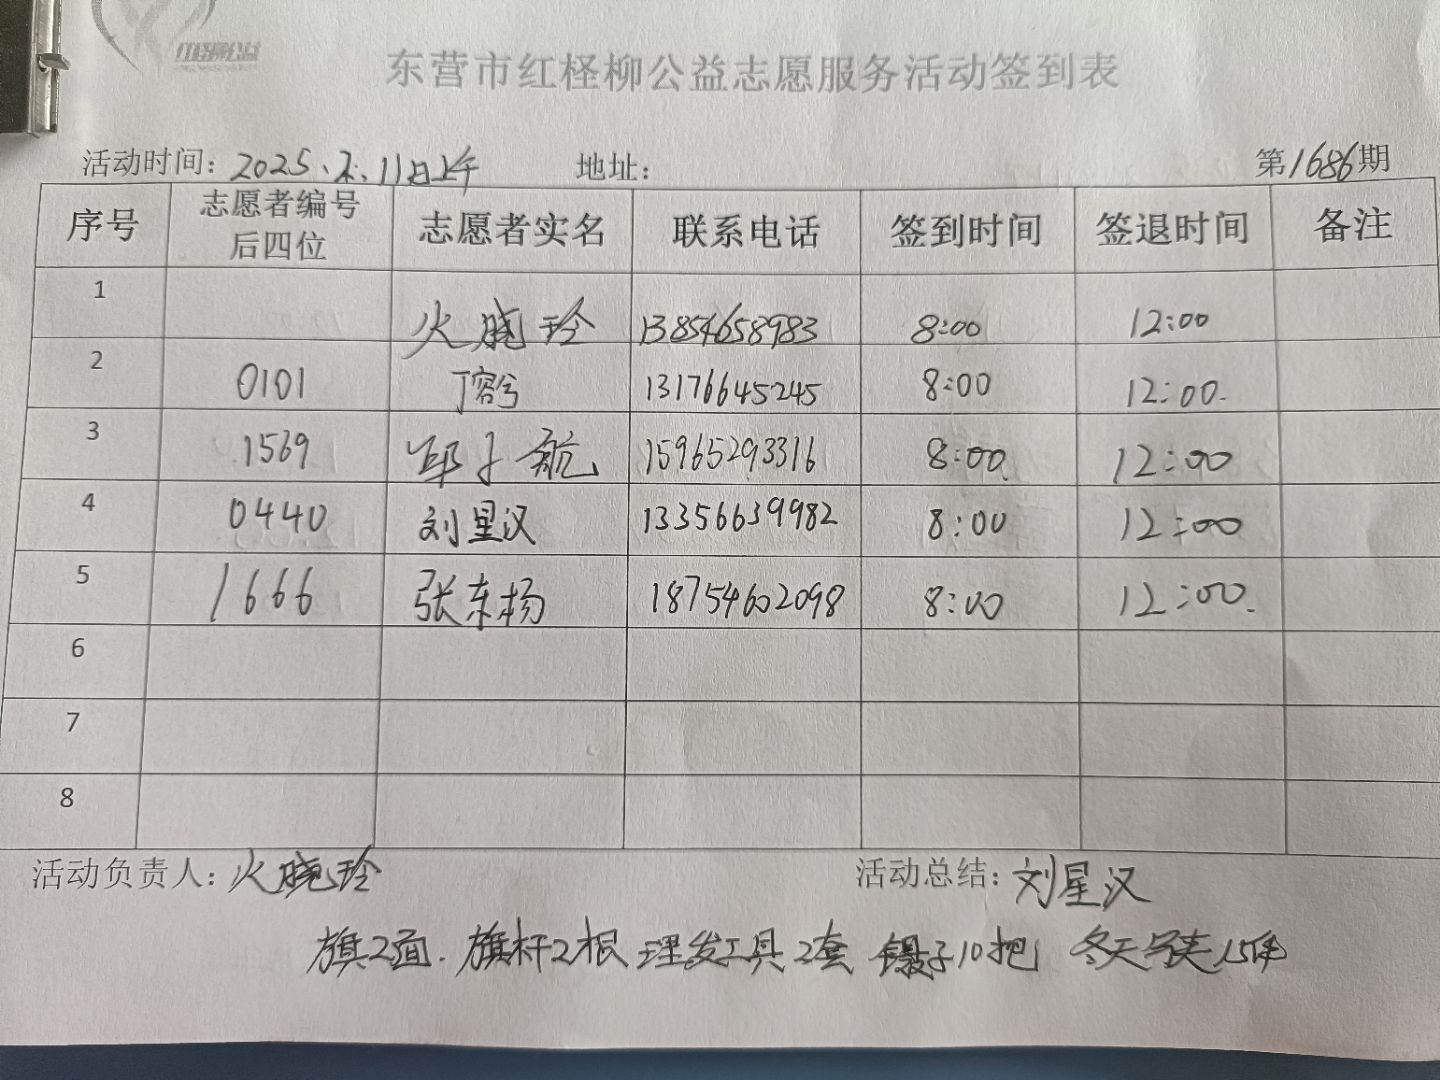 红柽柳公益
东营市红柽柳公益志愿服务活动签到表
活动时间：2025.2.11日上午 地址： 第1686期
序号 志愿者编号后四位 志愿者实名 联系电话 签到时间 签退时间 备注
1 火晓玲 13854658983 8:00 12:00
2 0101 丁容兮 13176645245 8:00 12:00.
3 1569 邱子航 15965293316 8:00 12:00
4 0440 刘星汉 13356639982 8:00 12:00
5 1666 张东杨 18754602098 8:00 12:00.
6
7
8
活动负责人：火晓玲 活动总结：刘星汉
旗2面. 旗杆2根 理发工具2套 镊子10把 冬天马夹15件